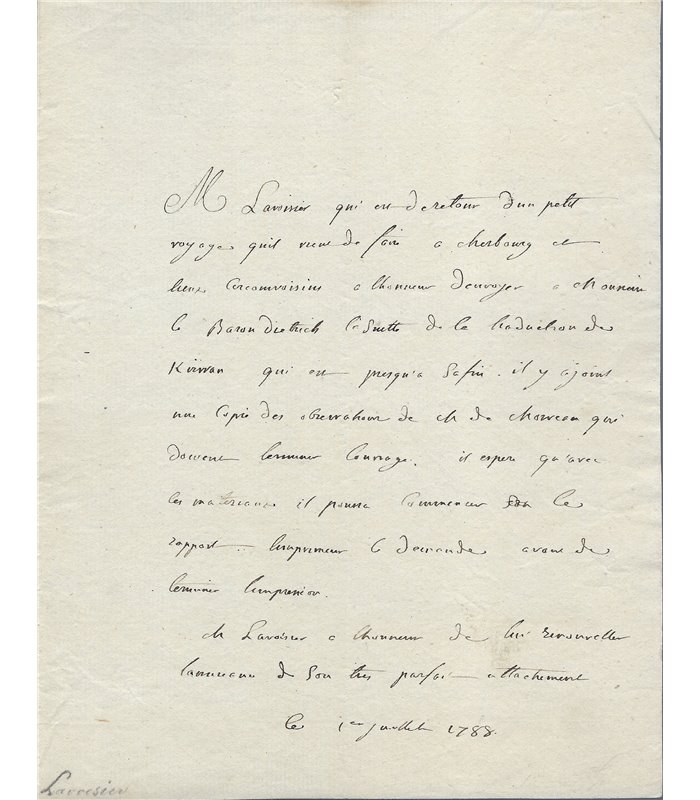 M Lavoisier qui est de retour d'un petit
voyage quil vient de faire a cherbourg et
lieux circonvoisins a lhonneur denvoyer a Monsieur
le Baron Dietrich la Suitte de la traduction de
Kirwan qui est presqu'a Sa fin. il y a joint
une Copie des observations de M de Morveau qui
doivent terminer louvrage. il espere qu'avec
ces materiaux il pourra Commencer le
rapport. limprimeur le demande avant de
terminer limpression.
M Lavoisier a lhonneur de lui renouveller
de Son tres parfait attachement
le 1er juillet 1788.
Lavoisier